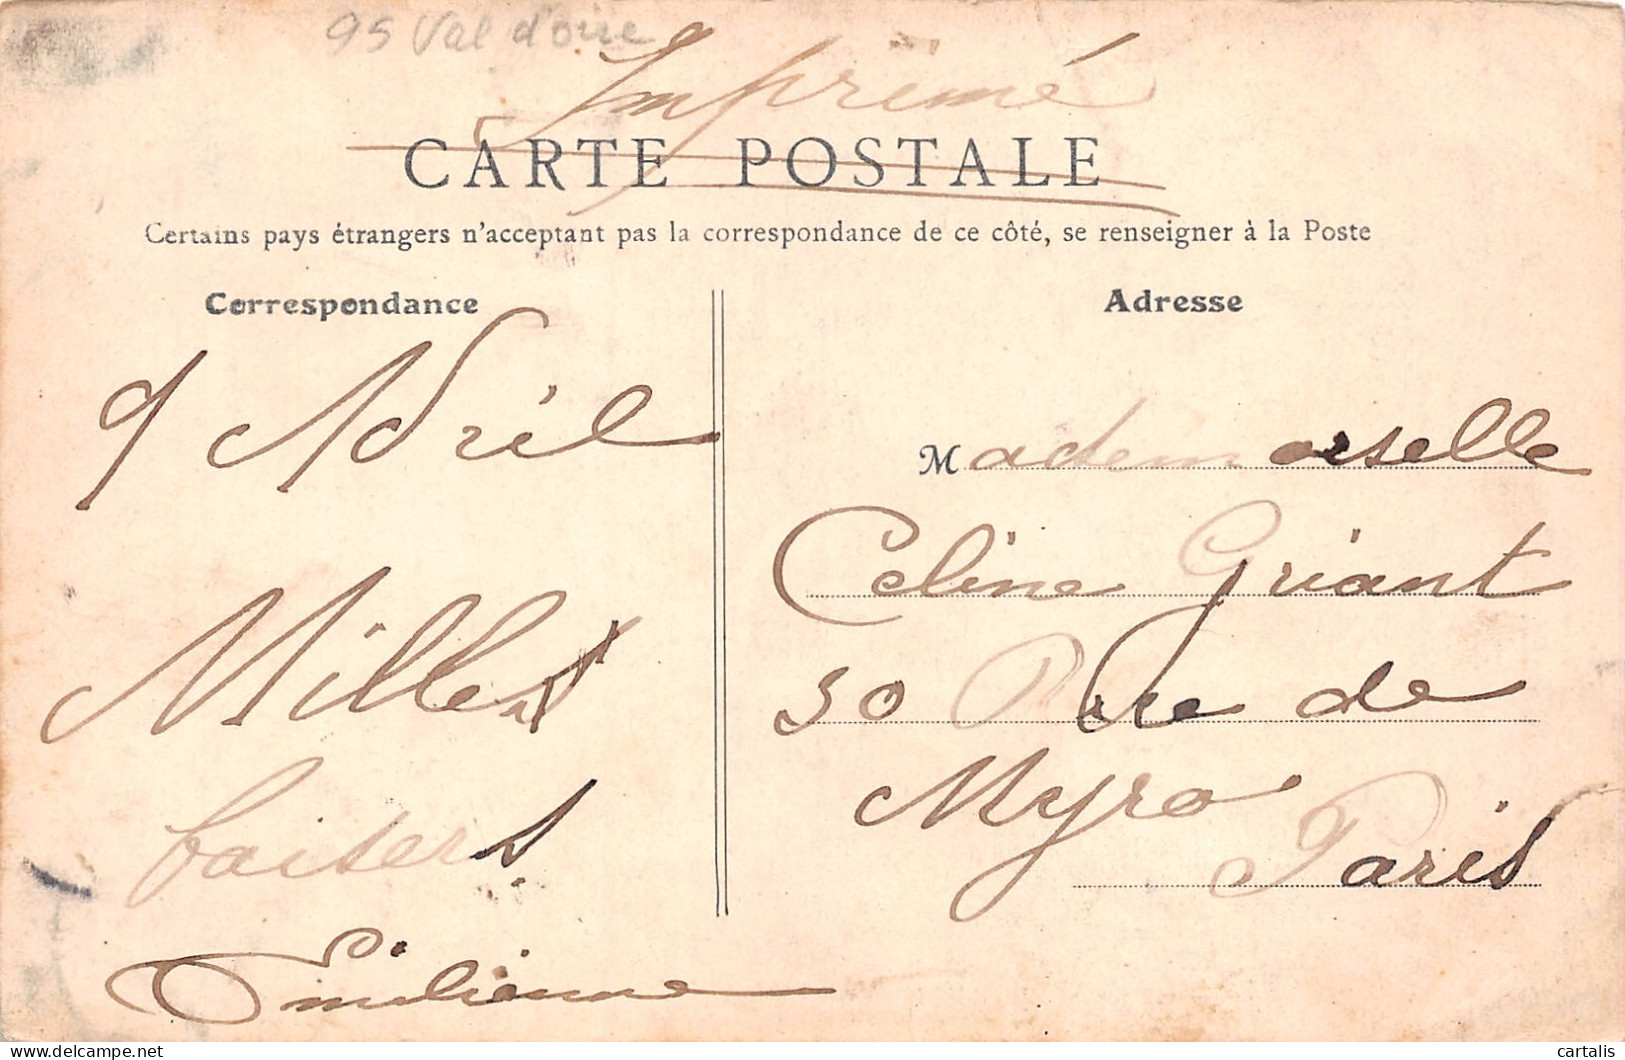 95 Val d'oise
Imprimé
CARTE POSTALE
Certains pays étrangers n'acceptant pas la correspondance de ce côté, se renseigner à la Poste
Correspondance
9 Avril
Milles
baisers
Emilienne
Adresse
Mademoiselle
Celine Griant
50 Rue de
Myra
Paris
cartalis
delcampe.net